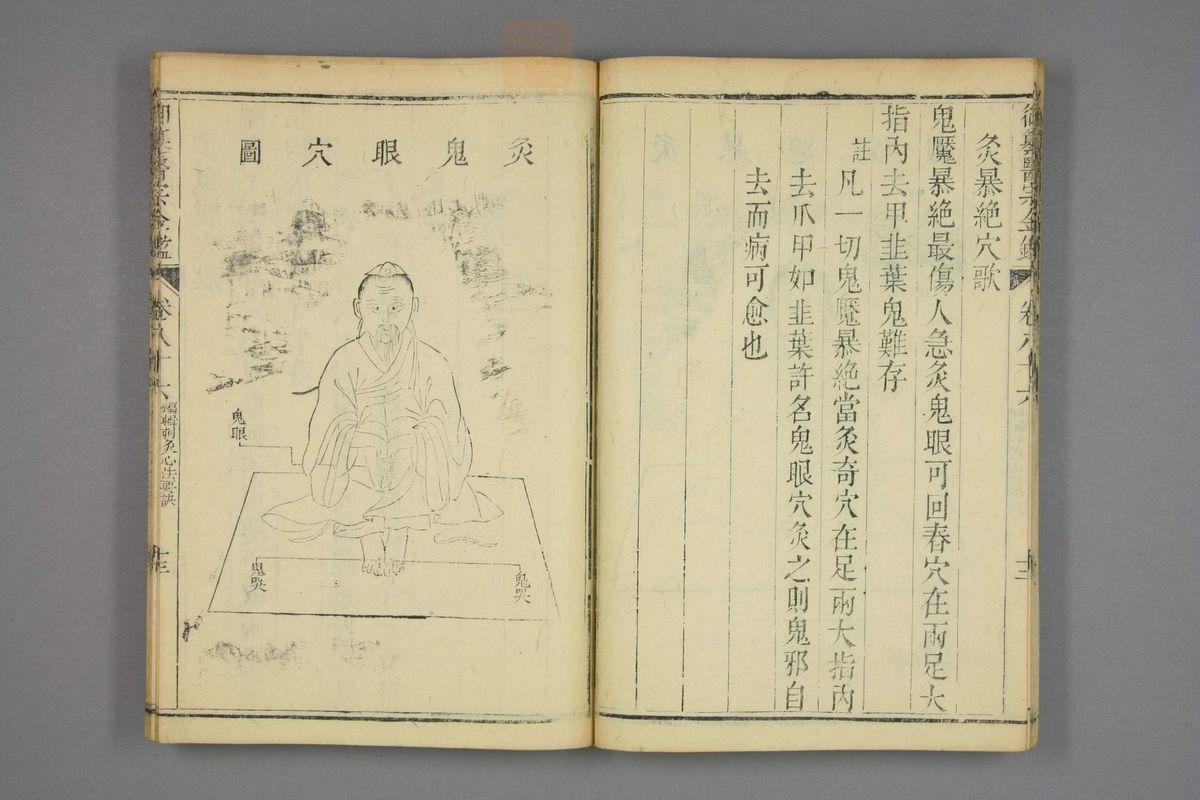 御纂醫宗金鑑
卷八十六
十二
灸暴絶穴歌
鬼魘暴絶最傷人急灸鬼眼可回春穴在兩足大
指內去甲韭葉鬼難存
註
凡一切鬼魘暴絶當灸奇穴在足兩大指內
去爪甲如韭葉許名鬼眼穴灸之則鬼邪自
去而病可愈也
灸鬼眼穴圖
鬼眼
鬼哭
鬼哭
醫宗金鑑
卷八十六
編輯刺灸心法要訣
十三